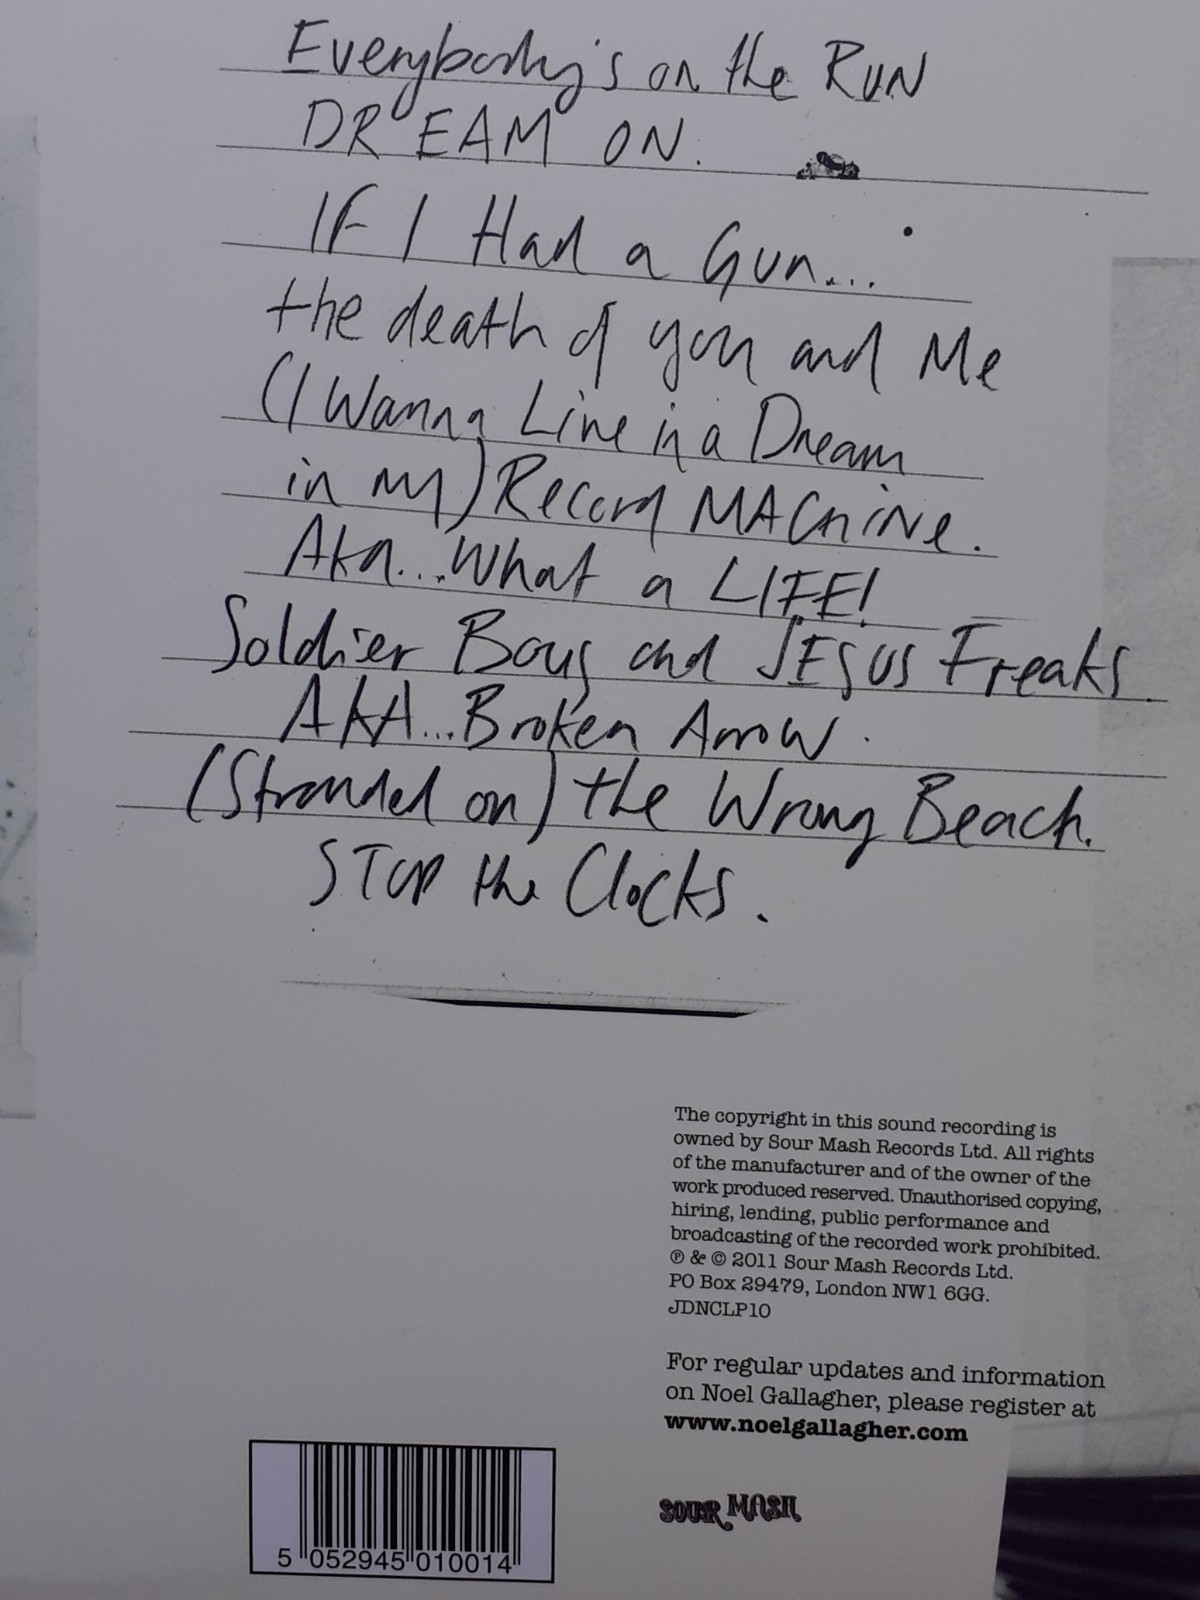 Everybody's on the RUN
DREAM ON.
IF I Had a Gun...
the death of you and Me
(I Wanna Live in a Dream
in my) Record MACHiNe.
Aka... What a LIFE!
Soldier Boys and JESUS Freaks
AKA... Broken Arrow.
(Stranded on) the Wrong Beach.
STOP the Clocks.
The copyright in this sound recording is
owned by Sour Mash Records Ltd. All rights
of the manufacturer and of the owner of the
work produced reserved. Unauthorised copying,
hiring, lending, public performance and
broadcasting of the recorded work prohibited.
℗ & © 2011 Sour Mash Records Ltd.
PO Box 29479, London NW1 6GG.
JDNCLP10
For regular updates and information
on Noel Gallagher, please register at
www.noelgallagher.com
SOUR MASH
5 052945 010014